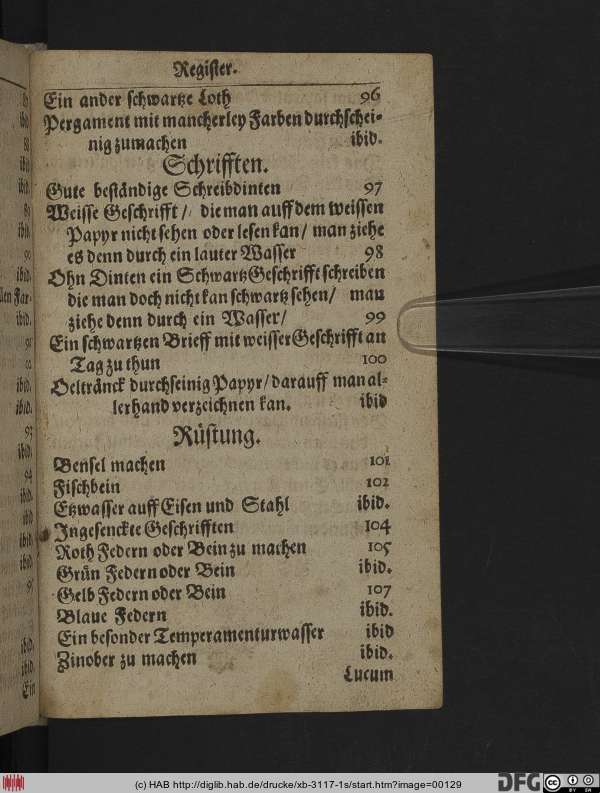 Register.
Ein ander schwartze Loth 96
Pergament mit mancherley Farben durchschei-
nig zumachen ibid.
Schrifften.
Gute beständige Schreibdinten 97
Weisse Geschrifft / die man auff dem weissen
Papyr nicht sehen oder lesen kan / man ziehe
es denn durch ein lauter Wasser 98
Ohn Dinten ein Schwartz Geschrifft schreiben
die man doch nicht kan schwartz sehen / man
ziehe denn durch ein Wasser / 99
Ein schwartzen Brieff mit weisser Geschrifft an
Tag zu thun 100
Oeltränck durchseinig Papyr / darauff man al-
lerhand verzeichnen kan. ibid
Rüstung.
Bensel machen 101
Fischbein 102
Etzwasser auff Eisen und Stahl ibid.
Ingesenckte Geschrifften 104
Roth Federn oder Bein zu machen 105
Grün Federn oder Bein ibid.
Gelb Federn oder Bein 107
Blaue Federn ibid.
Ein besonder Temperamenturwasser ibid
Zinober zu machen ibid.
Lucum
(c) HAB http://diglib.hab.de/drucke/xb-3117-1s/start.htm?image=00129
DFG
CC BY SA